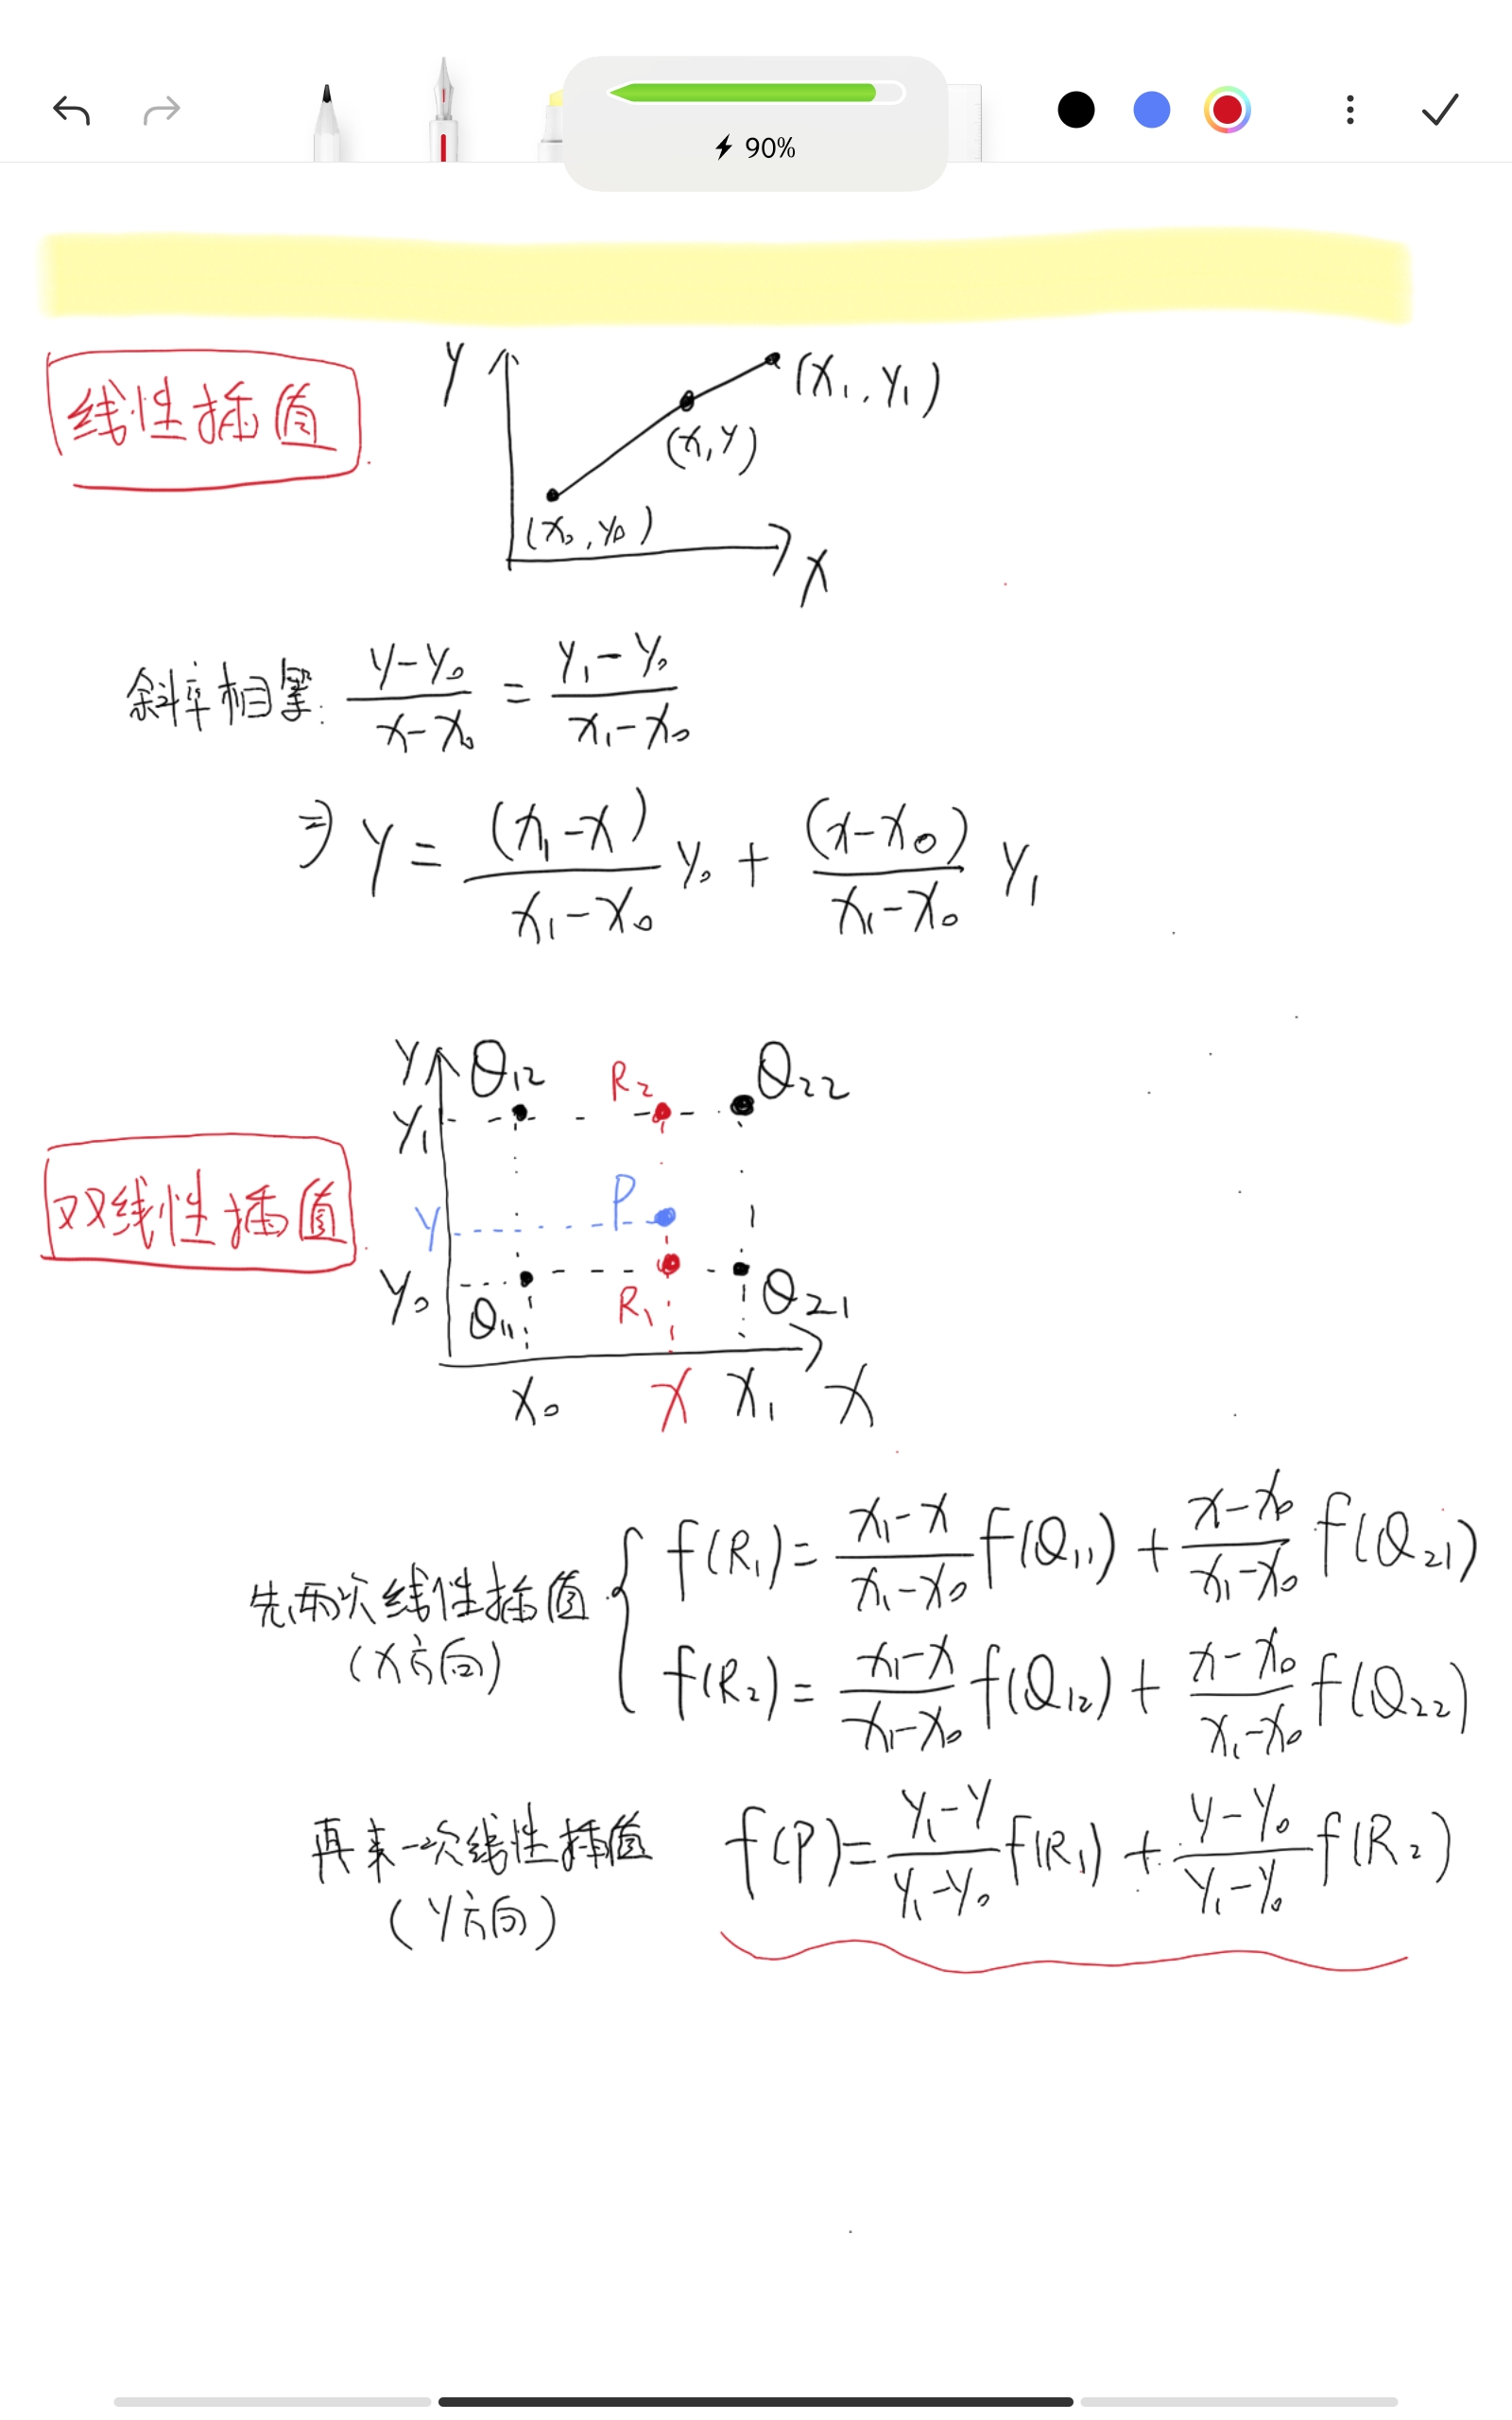 90%
线性插值.
Y
(x₁, y₁)
(x, y)
(x₀, y₀)
X
斜率相等: (y-y₀)/(x-x₀) = (y₁-y₀)/(x₁-x₀)
⇒ y = (x₁-x)/(x₁-x₀) y₀ + (x-x₀)/(x₁-x₀) y₁
Y Q₁₂ R₂ Q₂₂
y₁
双线性插值.
y P
y₀
Q₁₁ R₁ Q₂₁
x₀ x x₁ X
先两次线性插值 { f(R₁) = (x₁-x)/(x₁-x₀) f(Q₁₁) + (x-x₀)/(x₁-x₀) f(Q₂₁)
(X方向) f(R₂) = (x₁-x)/(x₁-x₀) f(Q₁₂) + (x-x₀)/(x₁-x₀) f(Q₂₂)
再来一次线性插值 f(P) = (y₁-y)/(y₁-y₀) f(R₁) + (y-y₀)/(y₁-y₀) f(R₂)
(Y方向)